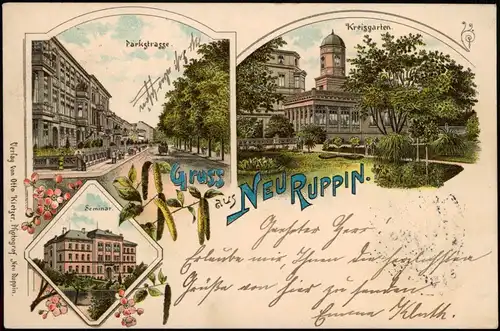 Parkstrasse.
Kreisgarten.
Gruss
aus
NEURUPPIN.
Seminar
Verlag von Otto Kletzer, Photograf, Neu Ruppin.
Geehrter Herr
Erlaube mir Ihnen die herzlichsten
Grüße von hier zu senden
Emma Kluth.